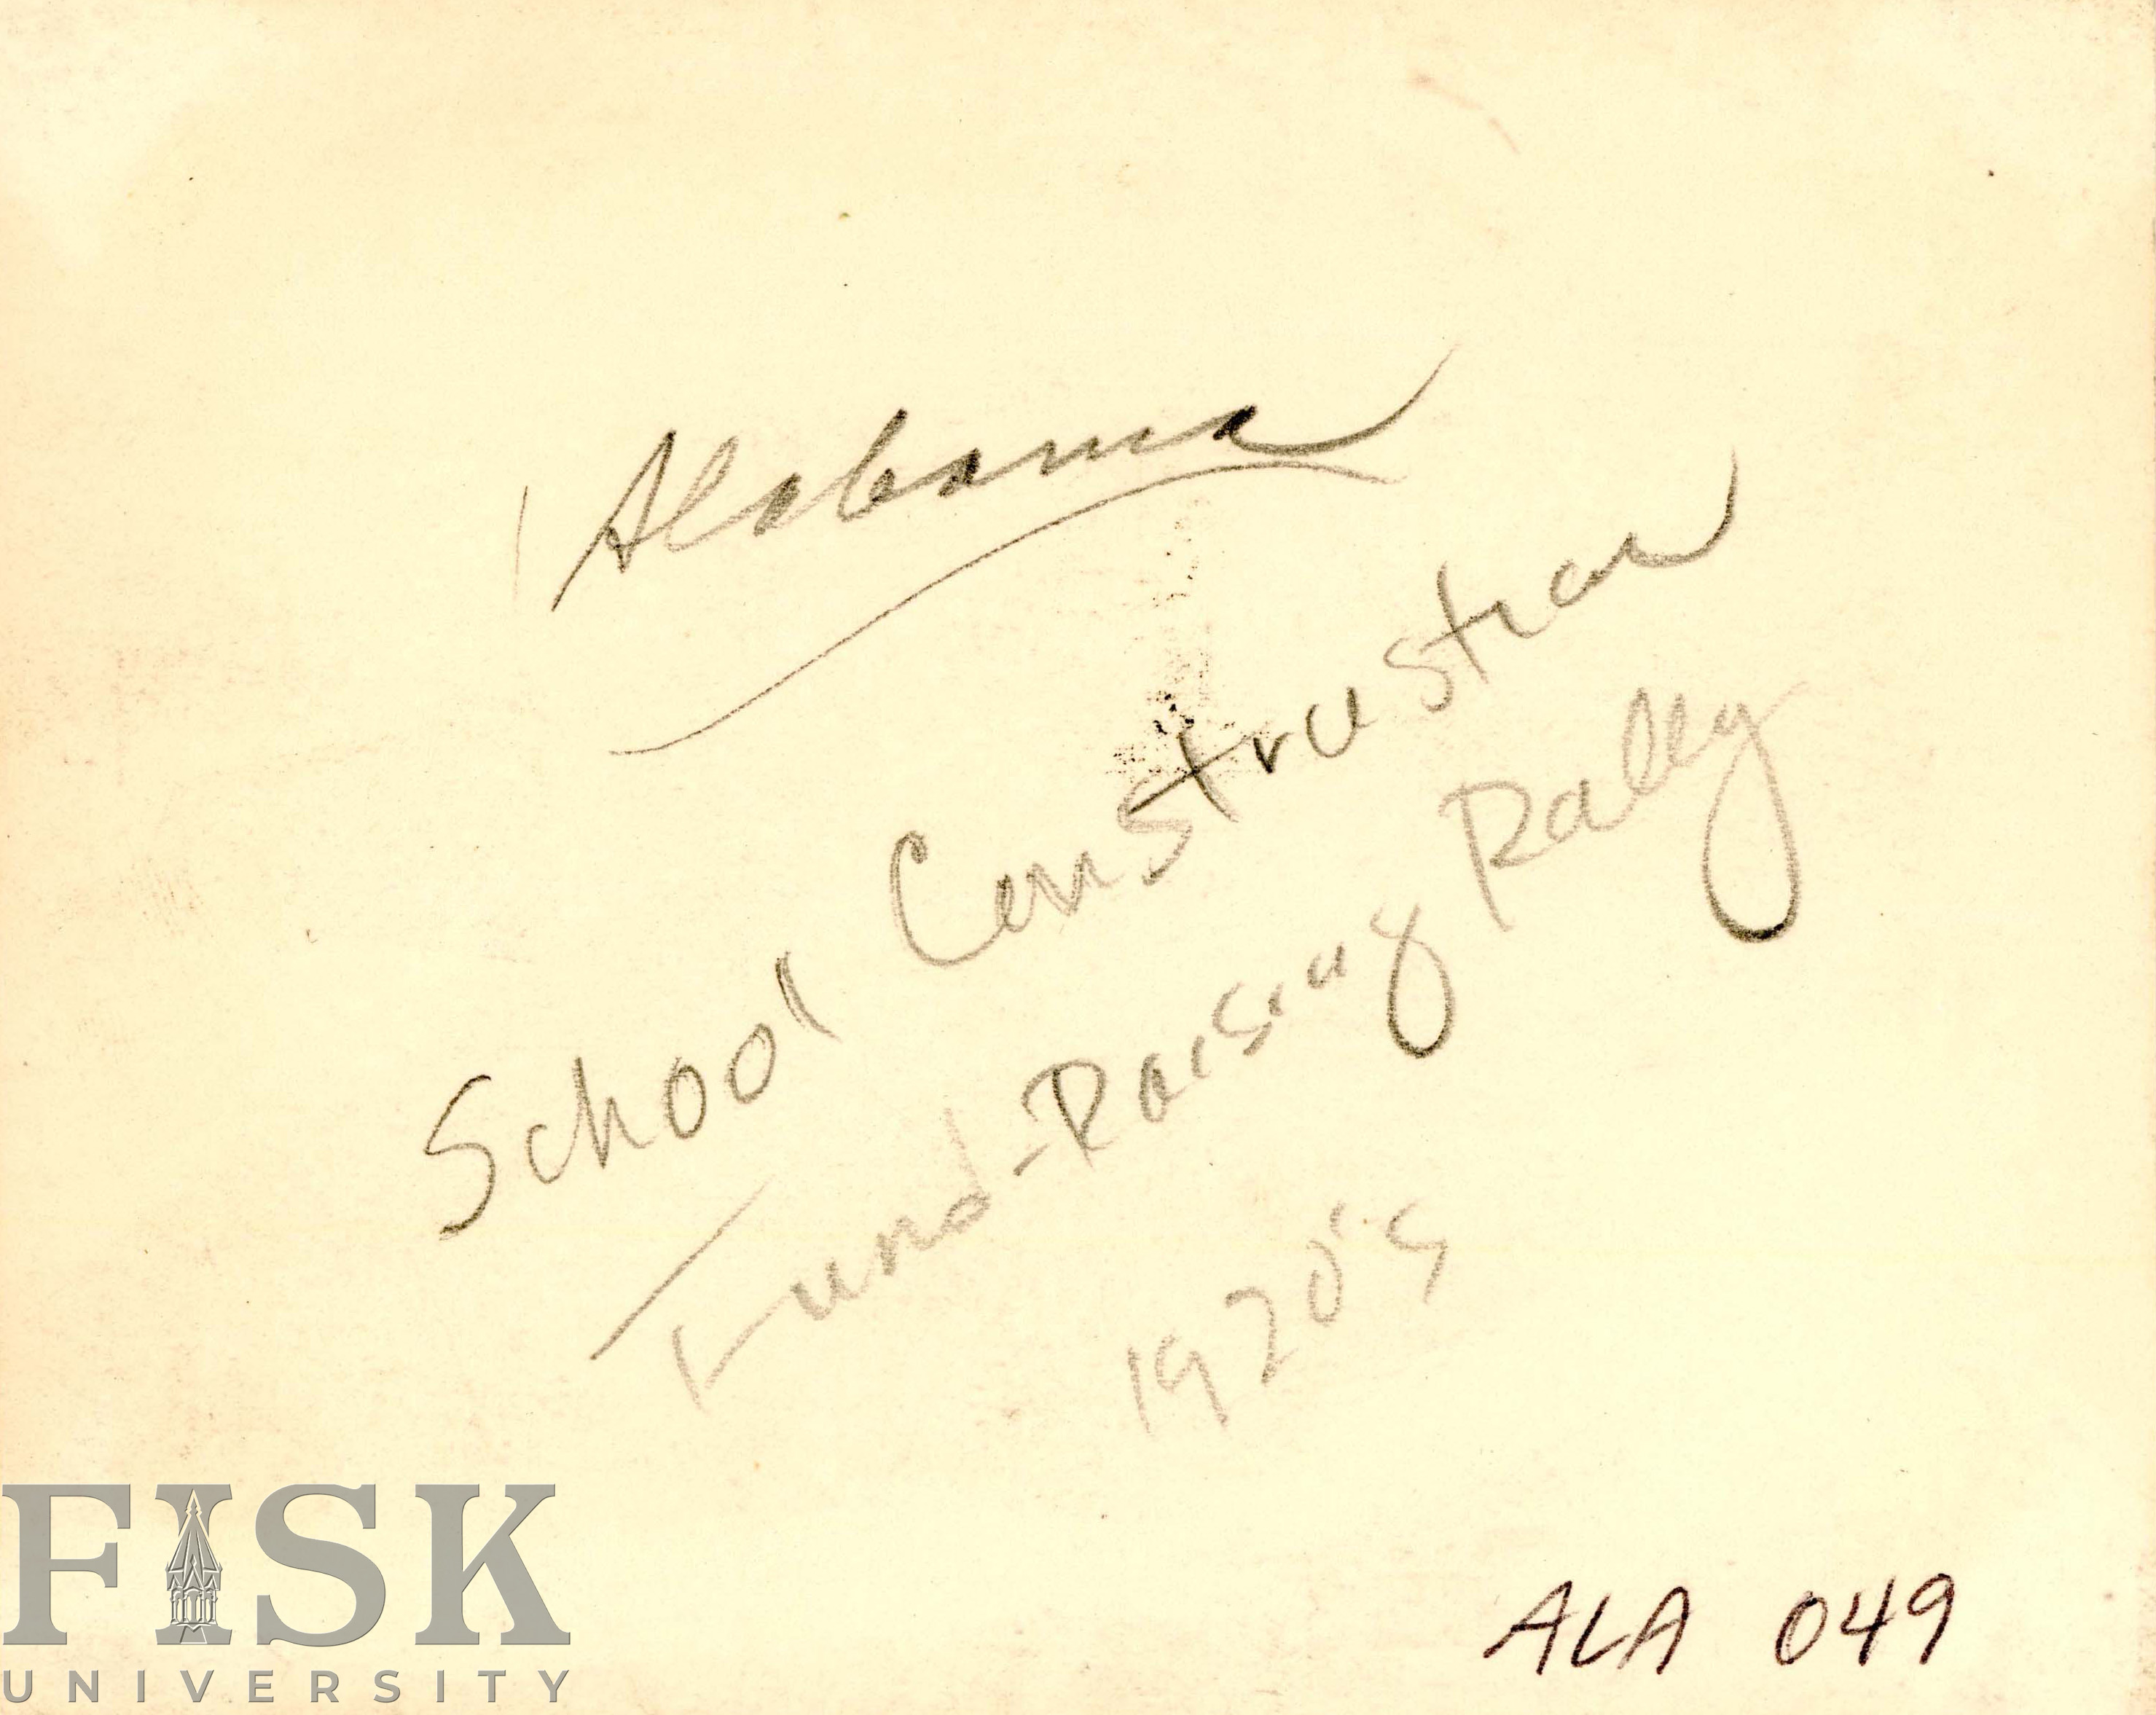 Alabama
School Construstion
Fund-Raising Rally
1920's
ALA 049
FISK
UNIVERSITY